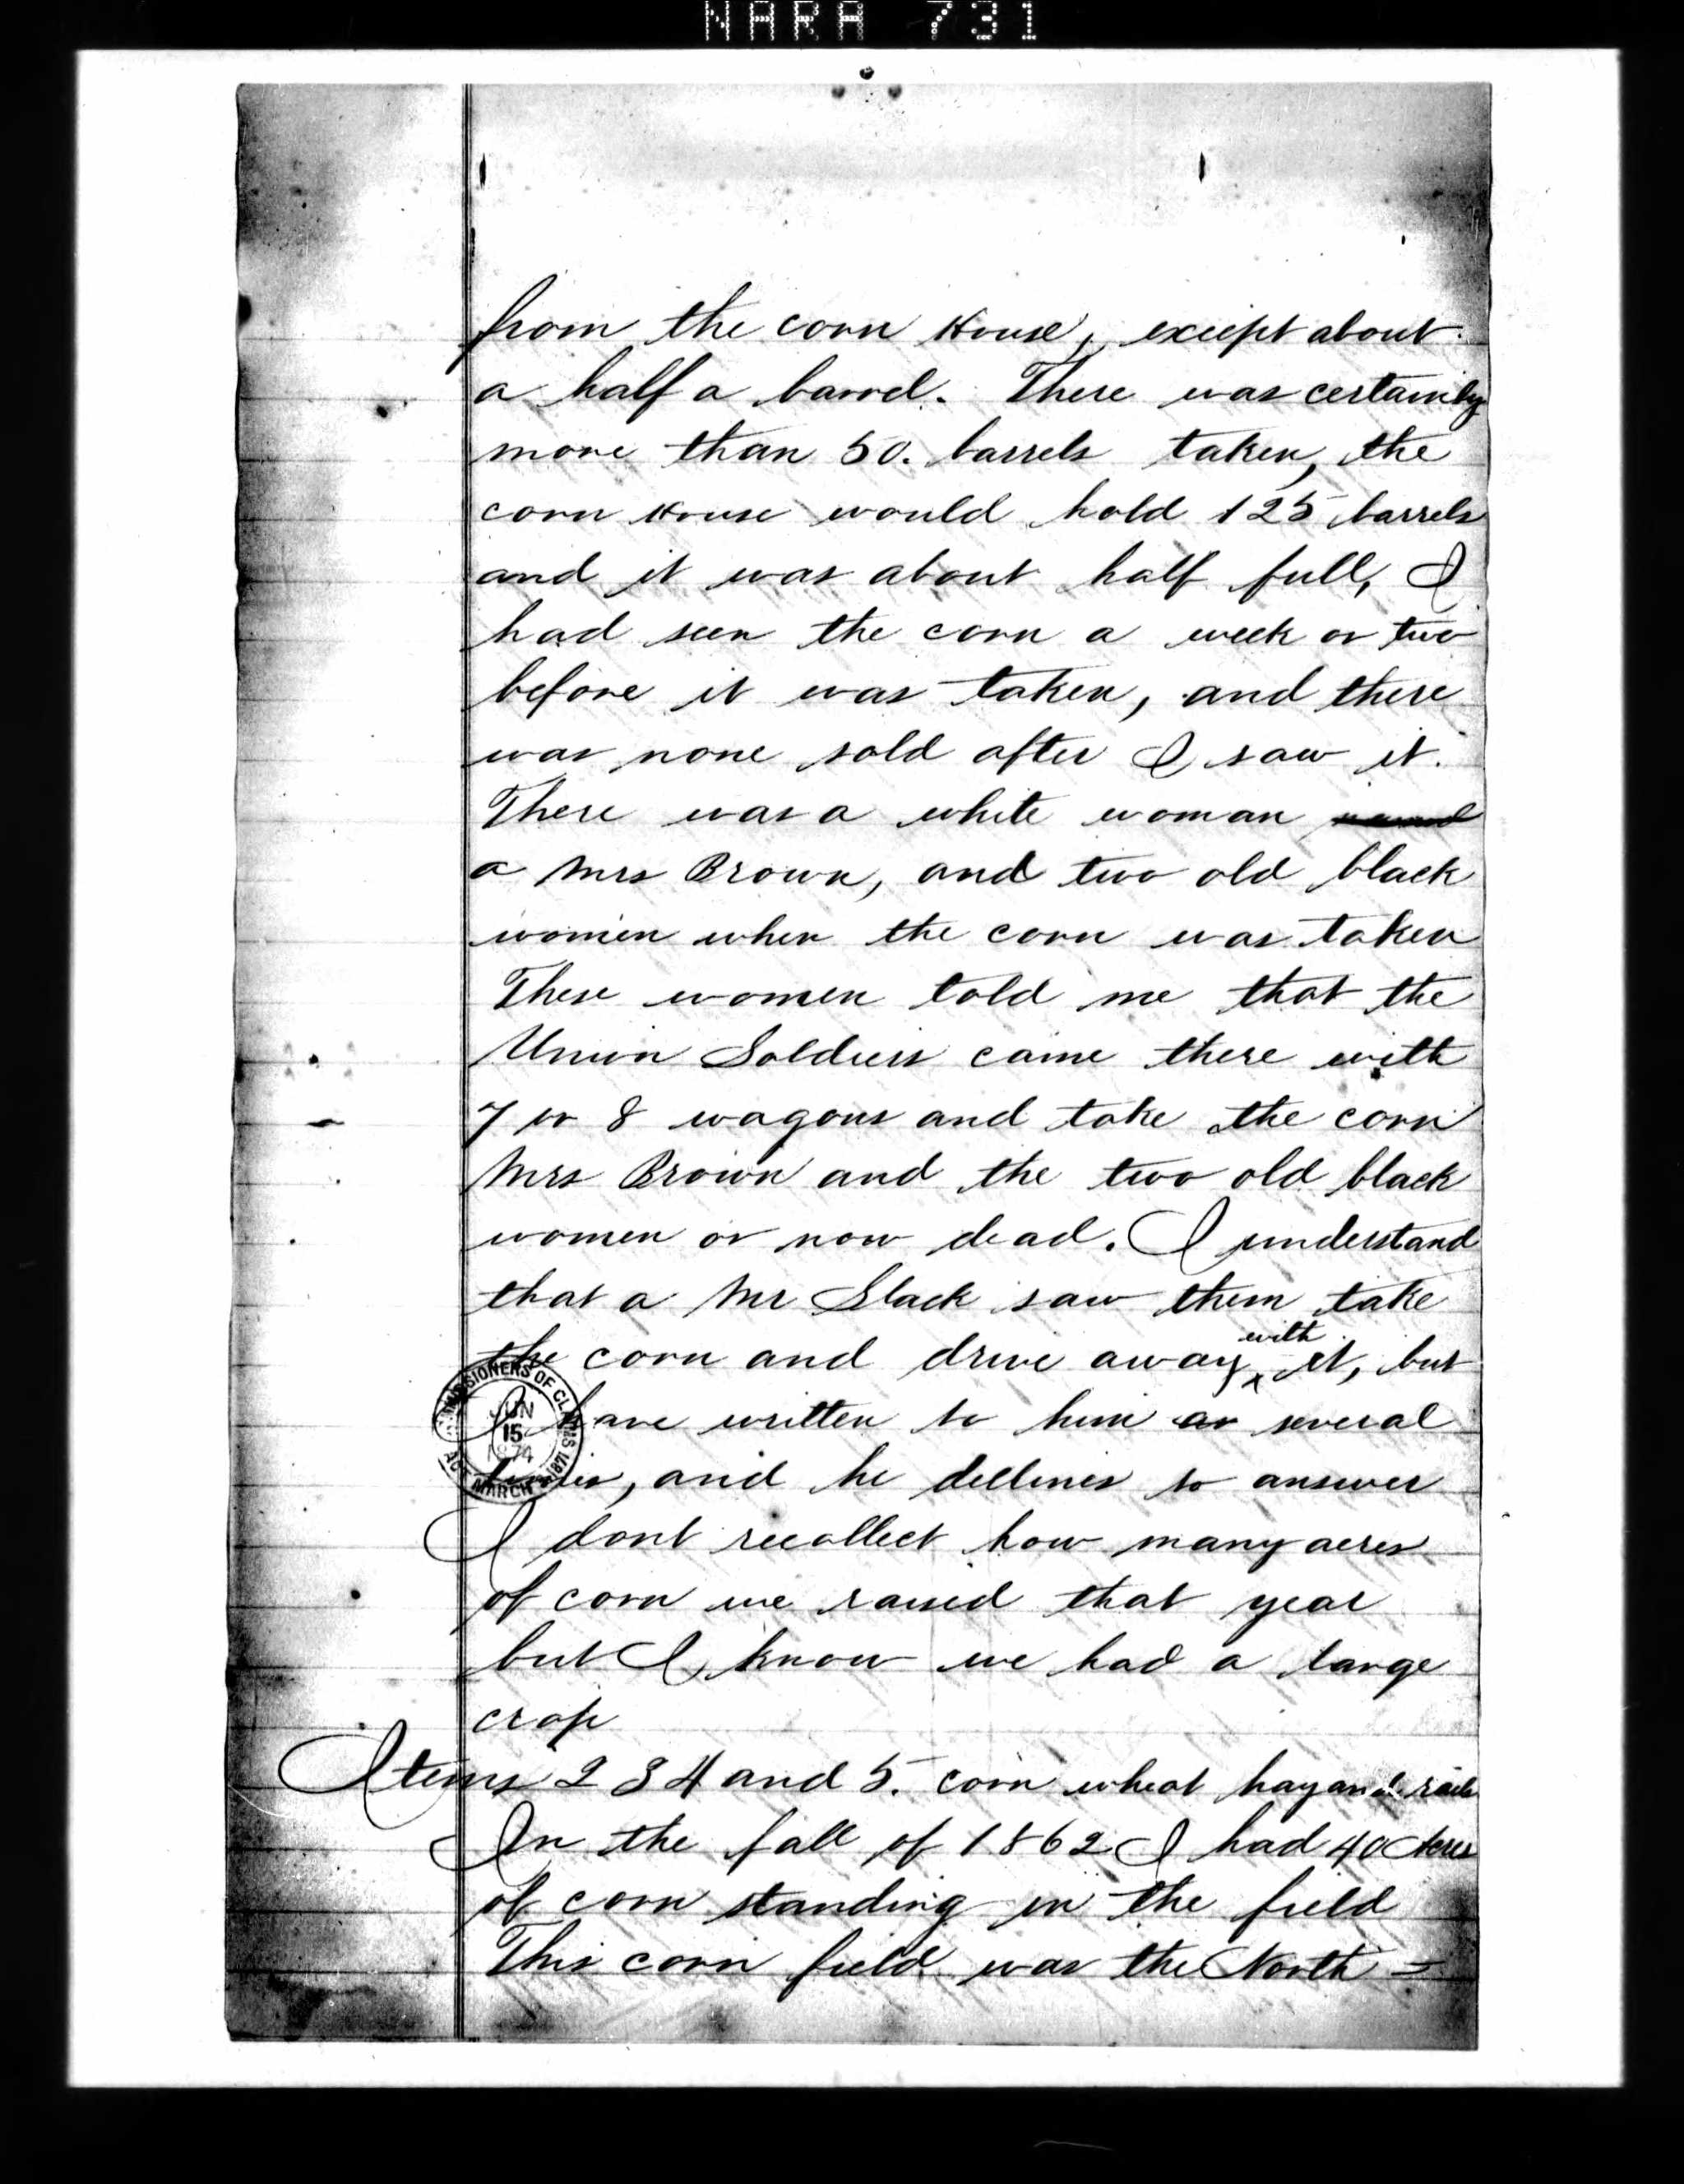 NARA 731
from the corn House, except about
a half a barrel. There was certainly
more than 50. barrels taken, the
corn House would hold 125 barrels
and it was about half full, I
had seen the corn a week or two
before it was taken, and there
was none sold after I saw it.
There was a white woman
a Mrs Brown, and two old black
women when the corn was taken
These women told me that the
Union Soldiers came there with
7 or 8 wagons and take the corn
Mrs Brown and the two old black
women or now dead. I understand
that a Mr Slack saw them take
the corn and drive away with it, but
I have written to him as several
times, and he declines to answer
I dont recollect how many acres
of corn we raised that year
but I know we had a large
crop
Items 2 3 4 and 5. corn wheat hay and rails
In the fall of 1862 I had 40 Acres
of corn standing in the field
This corn field was the North =
COMMISSIONERS OF CLAIMS
JUN
15
1874
ACT MARCH 3 1871